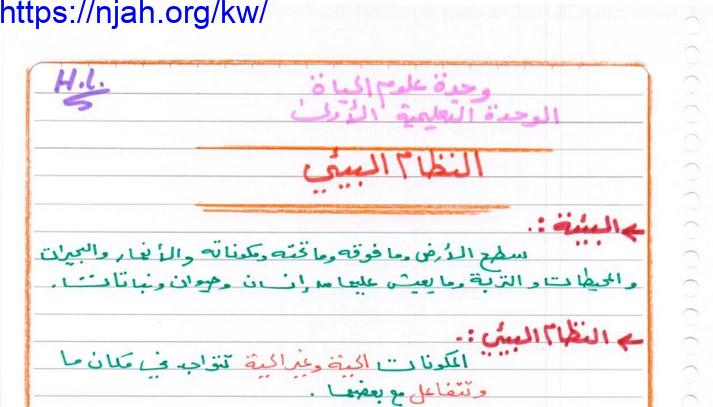 https://njah.org/kw/
H.L.
وحدة علوم الحياة
الوحدة التعليمية الأولى
النظام البيئي
← البيئة :.
سطح الأرض وما فوقه وما تحته ومكوناته والأنهار والبحيرات
والمحيطات والتربة وما يعيش عليها من إنسان وحيوان ونباتات.
← النظام البيئي :.
المكونات الحية وغير الحية تتواجد في مكان ما
وتتفاعل مع بعضها .